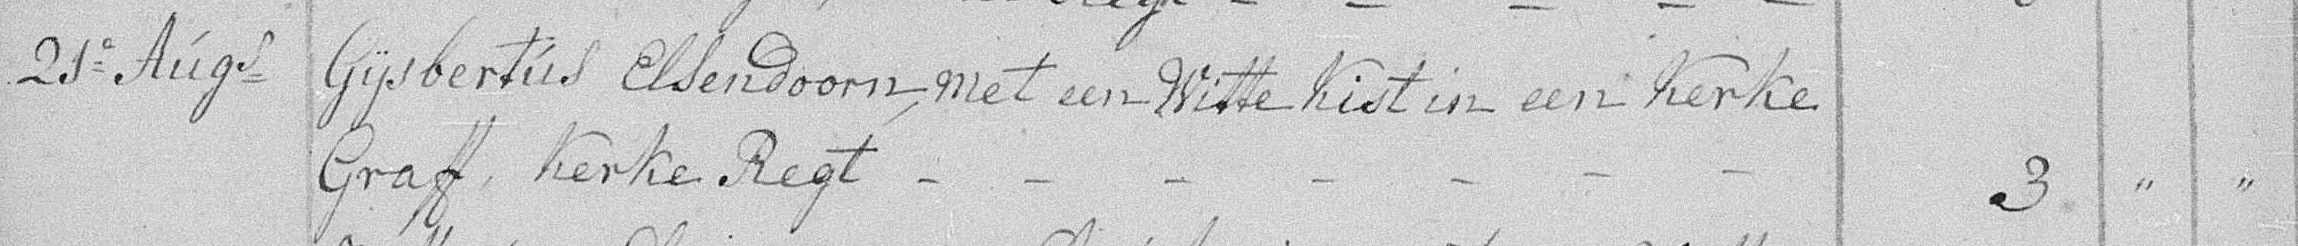 21.e Augs Gijsbertus Elsendoorn, met een Witte Kist in een Kerke
Graff, Kerke Regt - - - - - - - 3 " "